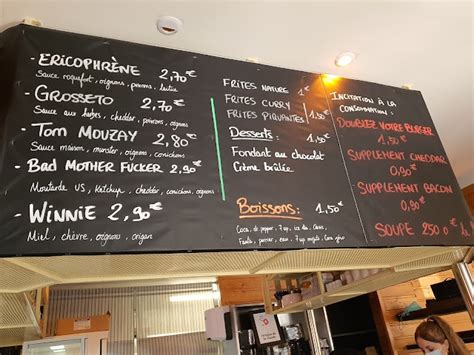 - ERICOPHRÈNE 2,70€
Sauce roquefort, oignons, poivrons, laitue
- GROSSETO 2,70€
Sauce aux herbes, cheddar, poivrons, oignons
- TOM MOUZAY 2,80€
Sauce maison, munster, oignons, cornichons
- BAD MOTHER FUCKER 2,90€
Moutarde US, Ketchup, cheddar, cornichons, oignons
- WINNIE 2,90€
Miel, chèvre, oignons, origan
FRITES NATURE 1€
FRITES CURRY
FRITES PIQUANTES 1,50€
Desserts:
Fondant au chocolat
Crème brûlée 1,50€
Boissons: 1,50€
Coca, dr pepper, 7up, ice tea,
Fanta, perrier, 7up mojito, Coca
INCITATION À LA
CONSOMMATION:
DOUBLEZ VOTRE BURGER
1,50€
SUPPLEMENT CHEDDAR
0,50€
SUPPLEMENT BACON
0,90€
SOUPE 250